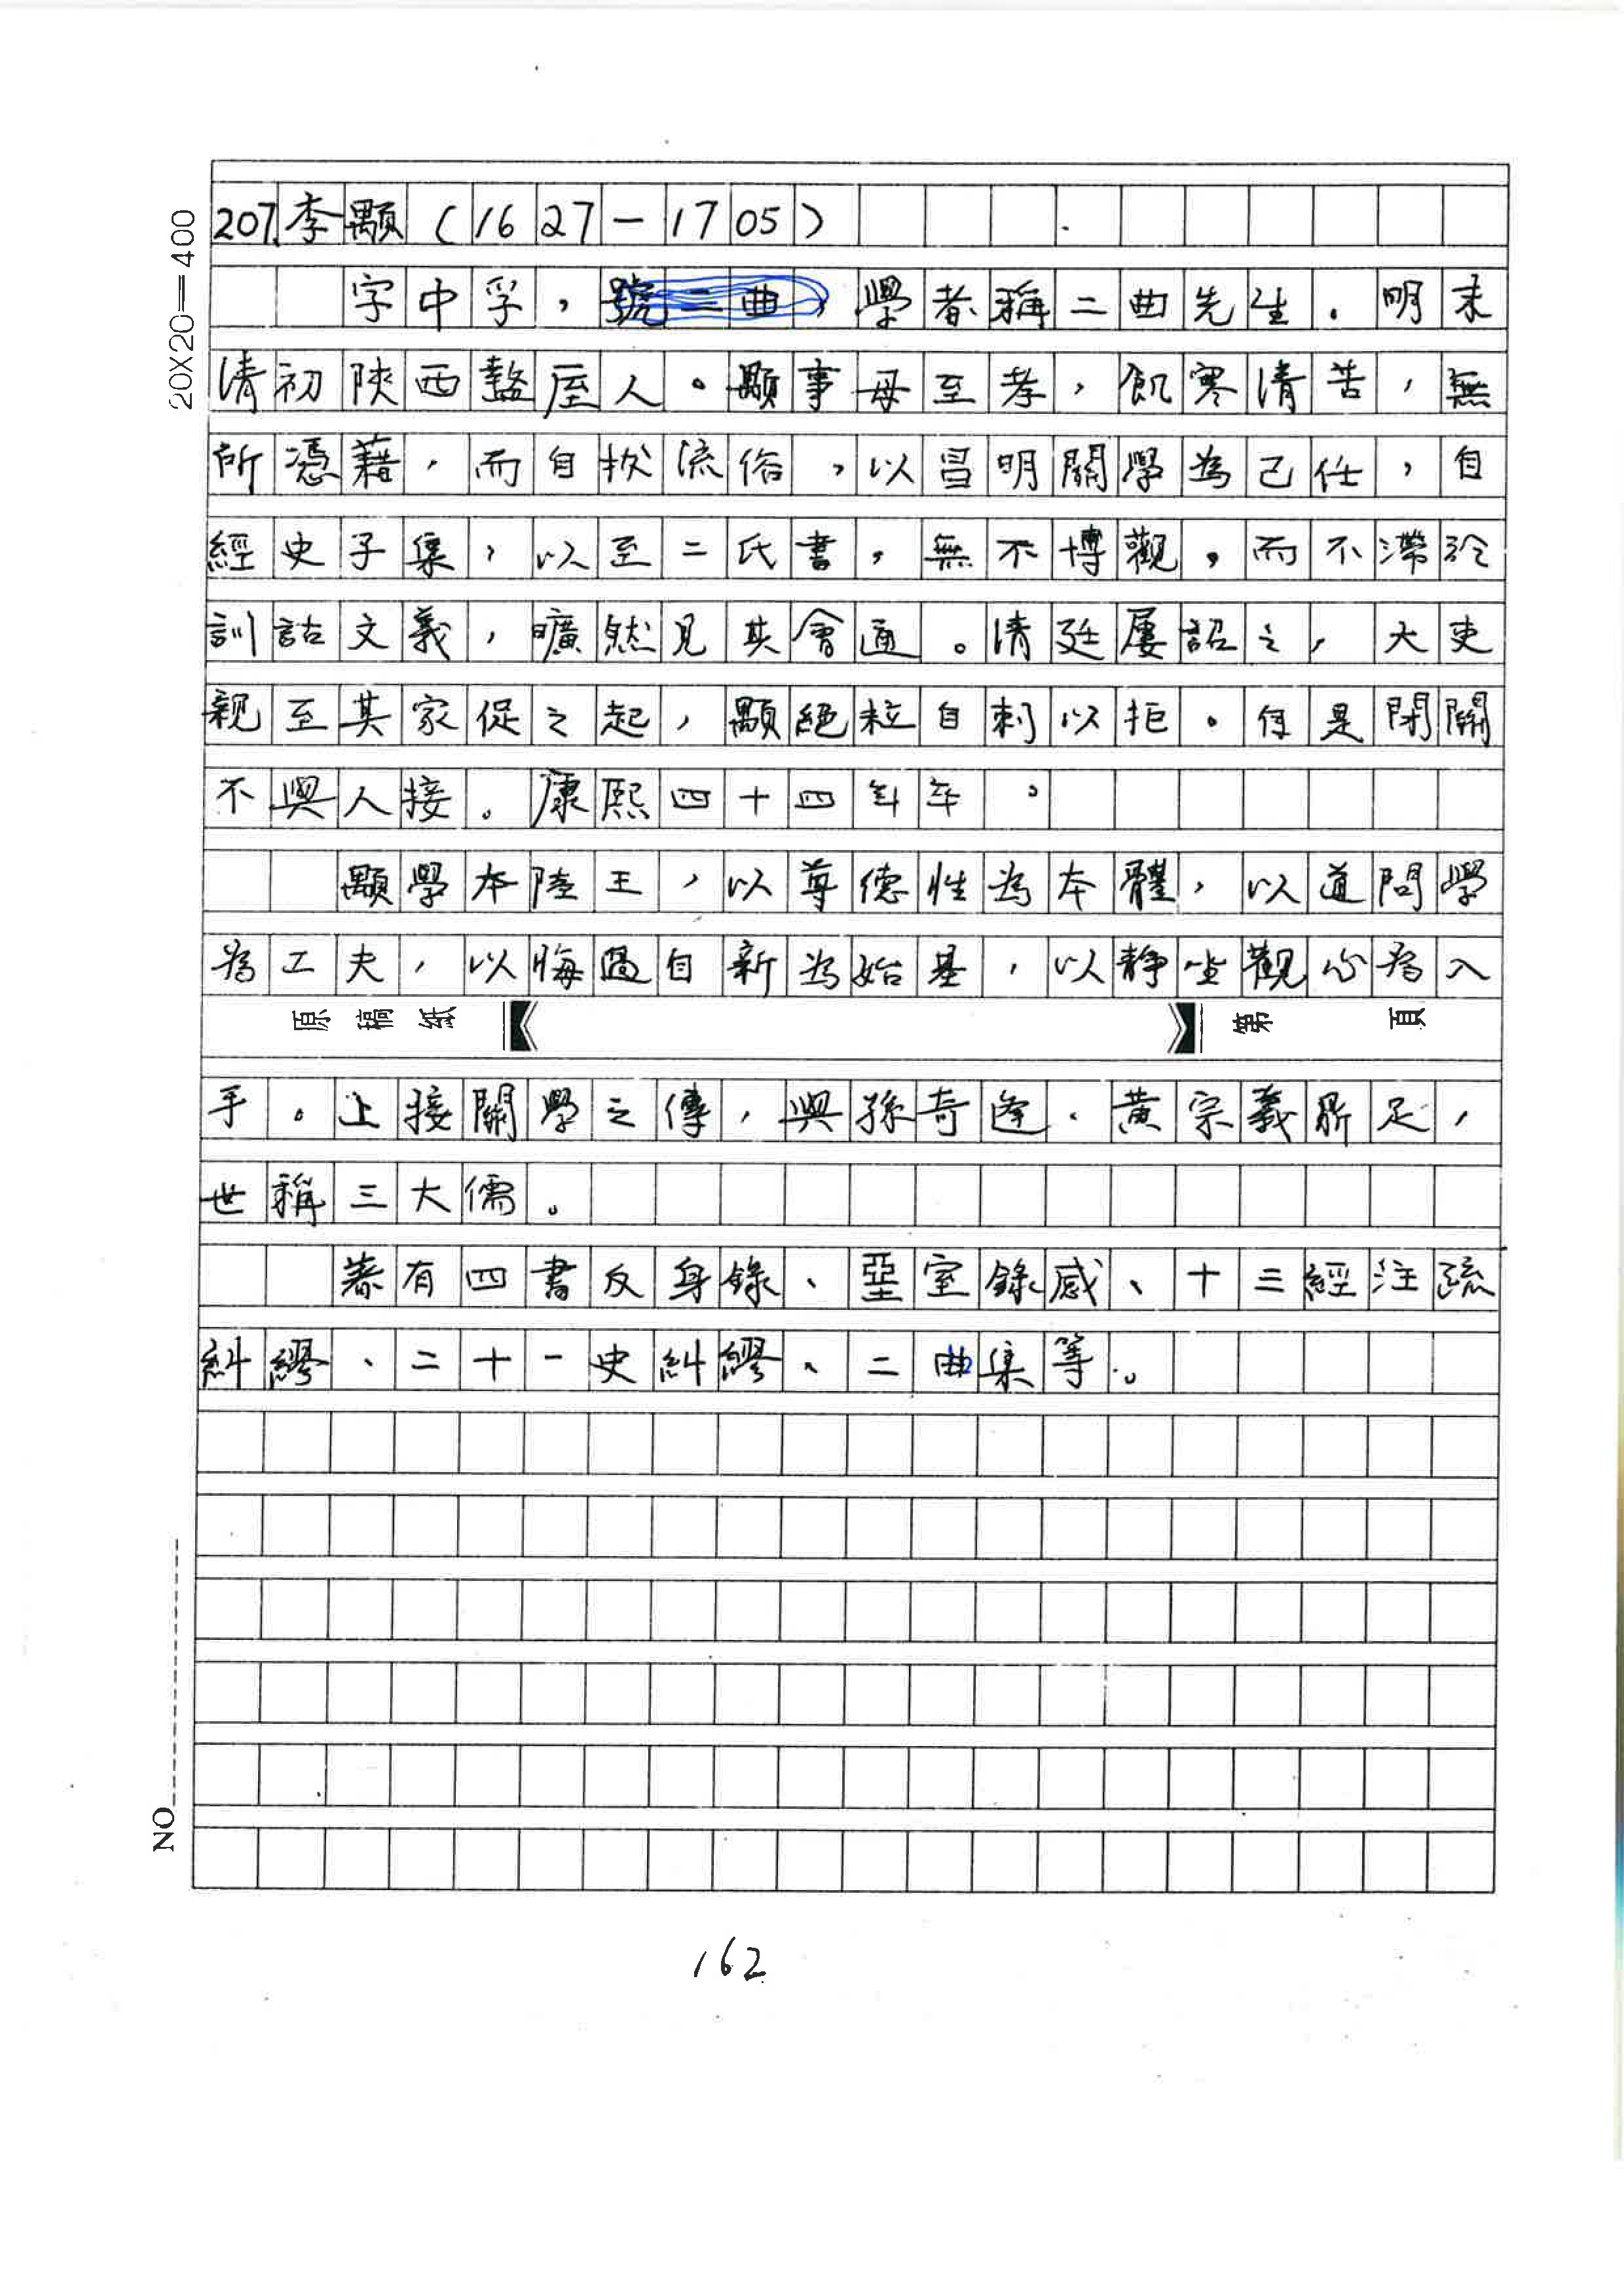 20X20=400
207.李顒(1627-1705)
字中孚，號二曲，學者稱二曲先生。明末
清初陝西盩厔人。顒事母至孝，飢寒清苦，無
所憑藉，而自拔流俗，以昌明關學為己任，自
經史子集，以至二氏書，無不博觀，而不滯於
訓詁文義，曠然見其會通。清廷屢詔之，大吏
親至其家促之起，顒絕粒自刺以拒。自是閉關
不與人接。康熙四十四年卒。
顒學本陸王，以尊德性為本體，以道問學
為工夫，以悔過自新為始基，以靜坐觀心為入
原稿紙 第 頁
手。上接關學之傳，與孫奇逢、黃宗羲鼎足，
世稱三大儒。
著有四書反身錄、堊室錄感、十三經注疏
糾繆、二十一史糾繆、二曲集等。
NO
162